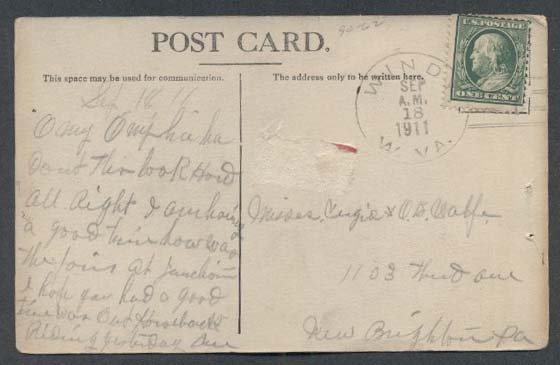 90-62
POST CARD.
This space may be used for communication.
The address only to be written here.
U.S. POSTAGE
ONE CENT
WIND
SEP
A.M.
18
1911
W. VA.
Sep 18 11
Dont Look Hard
all right I am having
a good time how was
the at Junction
I hope you had a good
time was out Horseback
Riding yesterday
Misses & Wolfe
1103 Third ave
New Brighton Pa